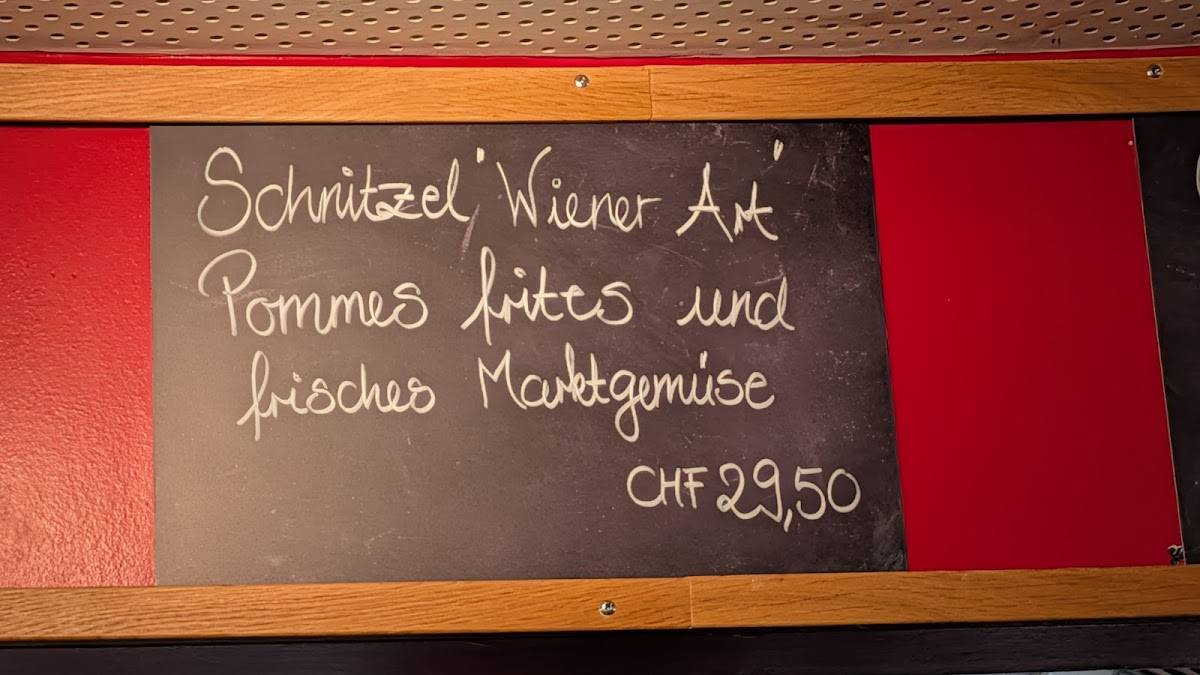 Schnitzel "Wiener Art"
Pommes frites und
frisches Marktgemüse
CHF 29,50